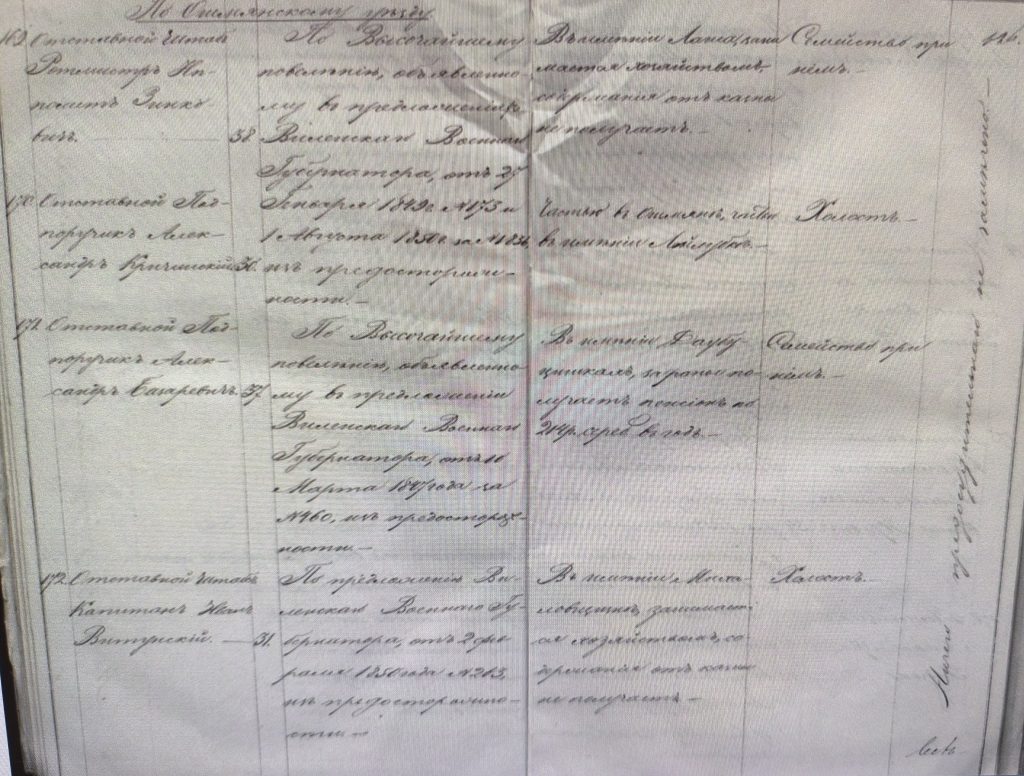 По Ошмянскому уѣзду
126.
169. Отставной Штабъ
Ротмистръ Ип-
политъ Зинке-
вичъ. — 38.
По Высочайшему
повелѣнію, объявленно-
му въ предложеніи
Виленскаго Военнаго
Губернатора, отъ 27
Генваря 1849 г. № 173 и
1 Августа 1850 г. за №
изъ предосторож-
ности. —
Въ имѣніи
мается хозяйствомъ,
содержанія отъ казны
не получаетъ. —
Семейство при
нёмъ. —
170. Отставной Под-
поручикъ Алек-
сандръ Кричинскій 36.
Частью въ Ошмянѣ,
въ имѣніи
Холостъ. —
171. Отставной Под-
поручикъ Алек-
сандръ Базаревичъ. 37.
По Высочайшему
повелѣнію, объявленно-
му въ предложеніи
Виленскаго Военнаго
Губернатора, отъ 10
Марта 1847 года за
№ 460, изъ предосторож-
ности. —
Въ имѣніи
за раны по-
лучаетъ пенсіонъ по
сереб. въ годъ. —
Семейство при
нёмъ. —
172. Отставной Штабъ
Капитанъ Иванъ
Витунскій. — 31.
По предложенію Ви-
ленскаго Военнаго Гу-
бернатора, отъ 2 Фев-
раля 1850 года № 213,
изъ предосторожно-
сти. —
Въ имѣніи Миха-
ловщинѣ, занимает-
ся хозяйствомъ, со-
держанія отъ казны
не получаетъ. —
Холостъ.
Ничего предосудительнаго не замѣчено. —